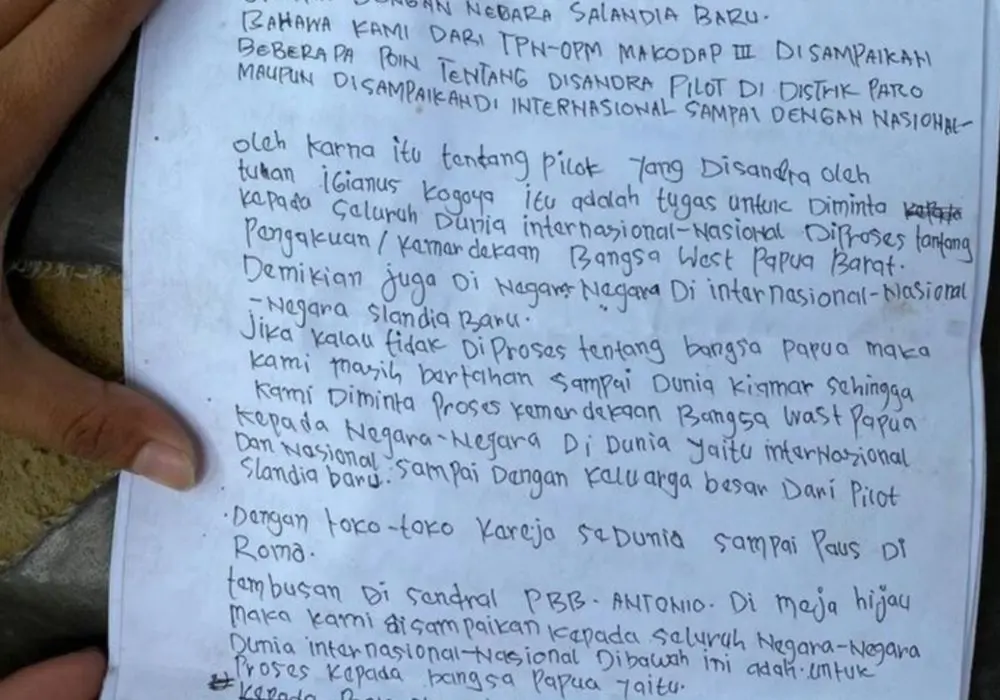 DENGAN NEBARA SALANDIA BARU.
BAHAWA KAMI DARI TPN-OPM MAKODAP III DISAMPAIKAN
BEBERAPA POIN TENTANG DISANDRA PILOT DI DISTRIK PARO
MAUPUN DISAMPAIKANDI INTERNASIONAL SAMPAI DENGAN NASIONAL-
oleh karna itu tentang pilot yang Disandra oleh
tuhan iGianus Kogoya itu adalah tugas untuk Diminta
kepada seluruh Dunia internasional-Nasional DiProses tantang
Pangakuan / kamardekaan Bangsa West Papua Barat.
Demikian juga Di Negara-Negara Di internasional-Nasional
-Negara slandia Baru.
Jika kalau tidak DiProses tentang bangsa papua maka
kami masih bertahan sampai Dunia kiamar sehingga
kami Diminta Proses kemerdekaan Bangsa Wast Papua
kepada Negara-Negara Di Dunia yaitu internasional
Dan Nasional slandia baru. Sampai Dengan kaluarga besar Dari Pilot
.Dengan toko-toko Kareja seDunia sampai Paus Di
Roma.
tembusan Di sendral PBB. ANTONIO. Di meja hijau
maka kami disampaikan kepada seluruh Negara-Negara
Dunia internasional-Nasional Dibawah ini adah.untuk
Proses kepada bangsa Papua yaitu.
kepada